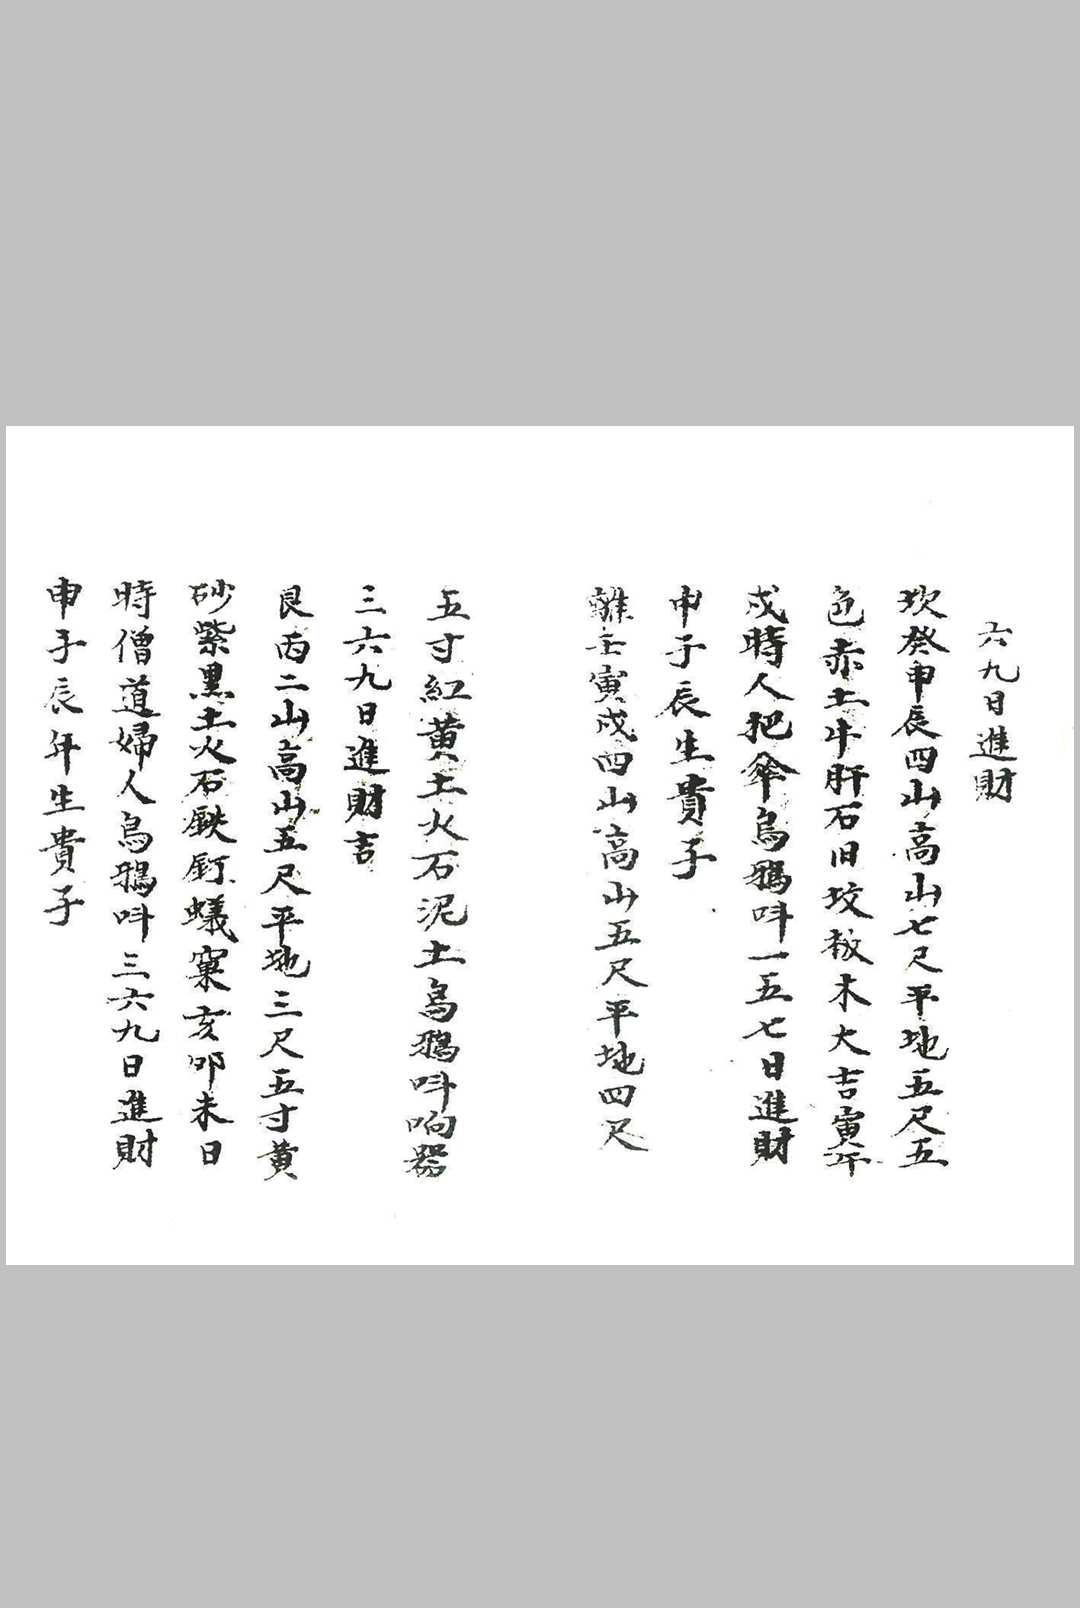 六九日進財
坎癸申辰四山高山七尺平地五尺五
色赤土牛肝石旧坟板木大吉寅午
戍時人把傘烏鴉呌一五七日進財
申子辰生貴子
離壬寅戍四山高山五尺平地四尺
五寸紅黄土火石泥土烏鴉呌响器
三六九日進財吉
艮丙二山高山五尺平地三尺五寸黄
砂紫黑土火石鉄釘蟻窠亥卯未日
時僧道婦人烏鴉呌三六九日進財
申子辰年生貴子